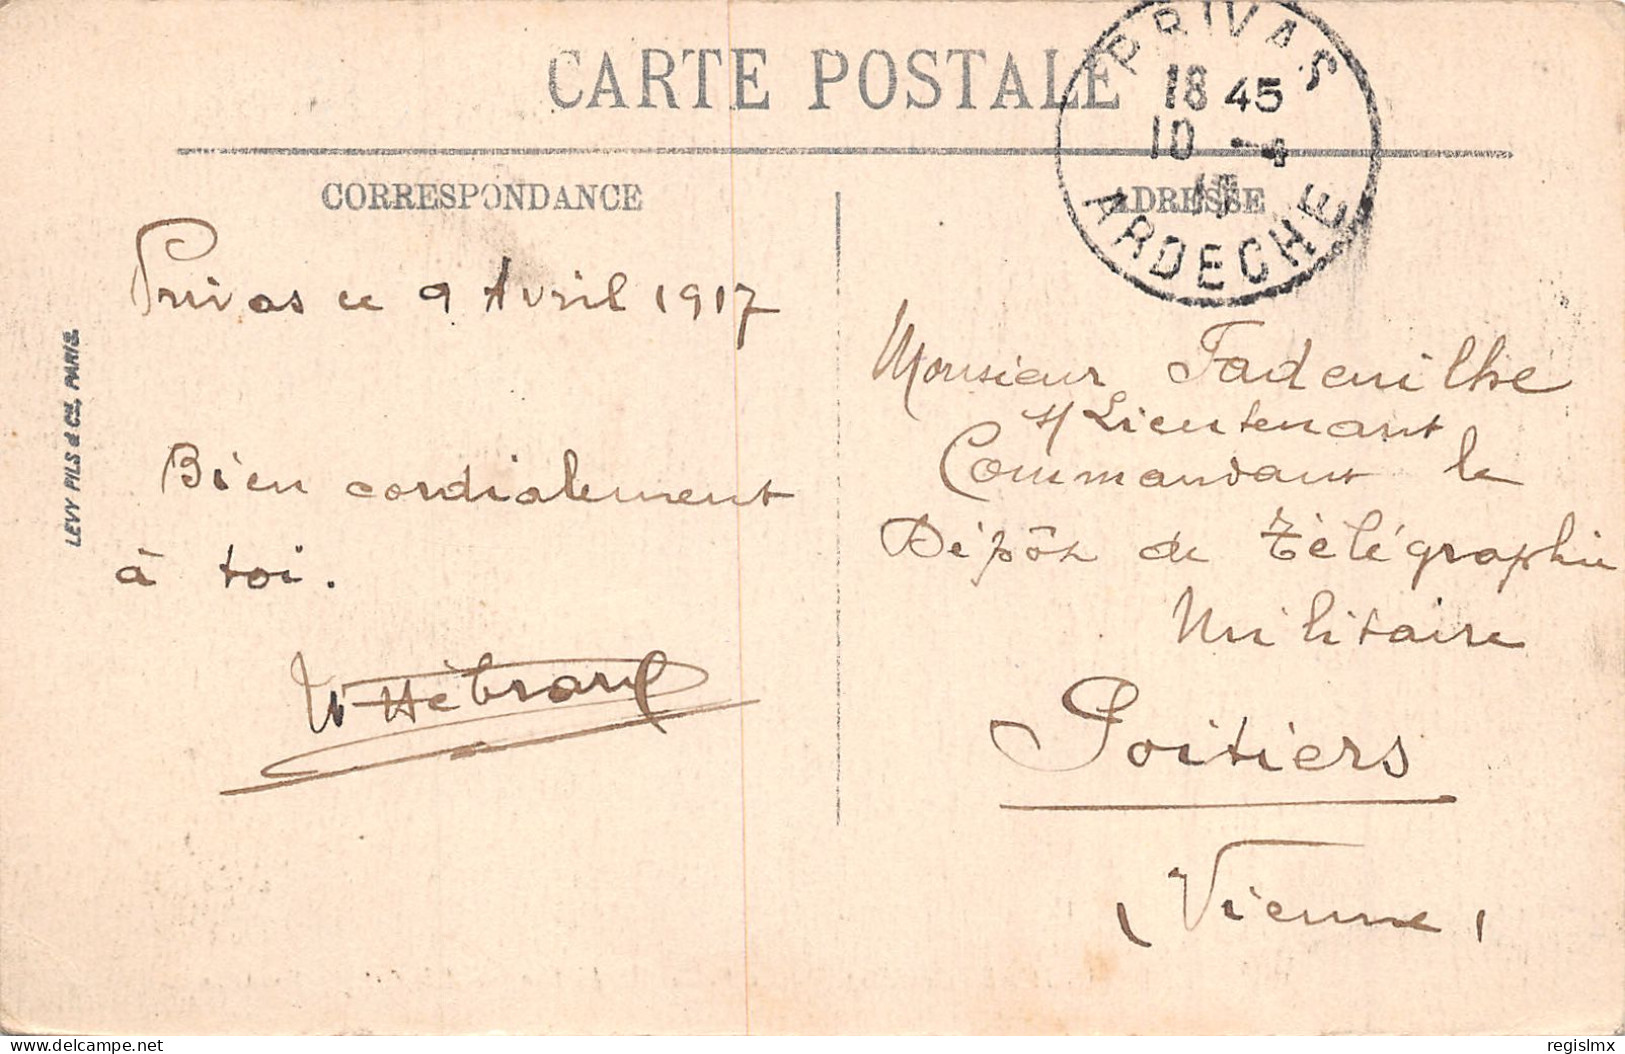 CARTE POSTALE
PRIVAS
18 45
10 -4
17
ARDECHE
CORRESPONDANCE
ADRESSE
Privas ce 9 Avril 1917
Bien cordialement
à toi.
Hébrard
LEVY FILS & Cie, PARIS.
Monsieur Fadeuilhe
s/Lieutenant
Commandant le
Dépôt de Télégraphie
Militaire
Poitiers
(Vienne)
delcampe.net
regislmx